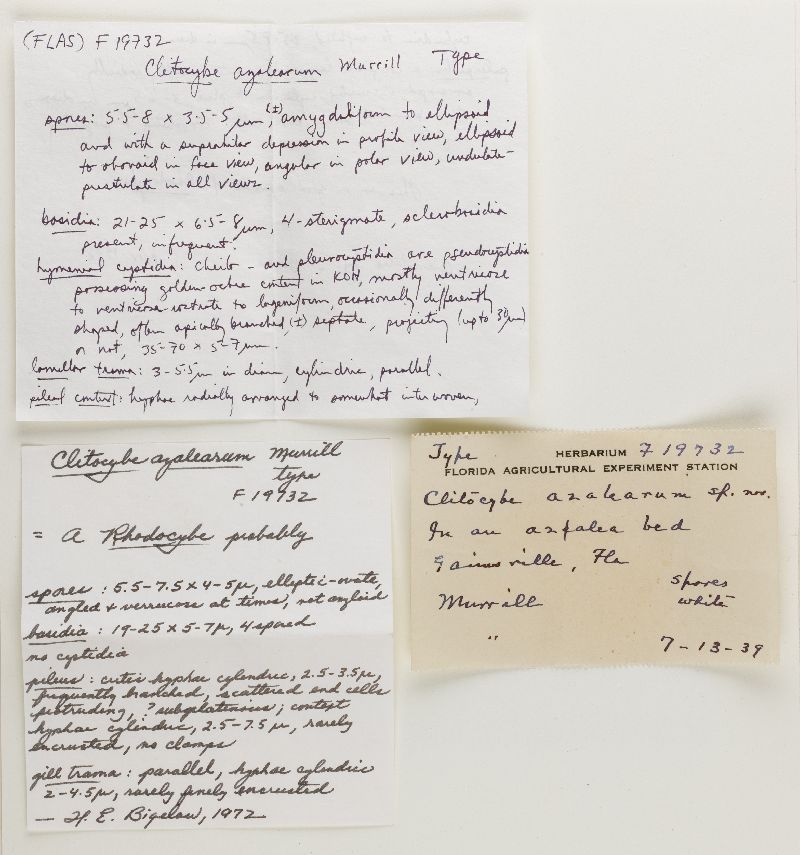 (FLAS) F 19732
Clitocybe azalearum Murrill Type
spores: 5.5-8 x 3.5-5 µm, (±) amygdaliform to ellipsoid
and with a suprahilar depression in profile view, ellipsoid
to obovoid in face view, angular in polar view, undulate-
pustulate in all views.
basidia: 21-25 x 6.5-8 µm, 4-sterigmate, sclerobasidia
present, infrequent.
hymenial cystidia: cheilo- and pleurocystidia are pseudocystidia
possessing golden-ochre content in KOH, mostly ventricose
to ventricose-rostrate to lageniform, occasionally differently
shaped, often apically branched, (±) septate, projecting (up to 30 µm)
or not, 35-70 x 5-7 µm.
lamellar trama: 3-5.5 µm in diam, cylindric, parallel.
pileal context: hyphae radially arranged to somewhat interwoven,
Clitocybe azalearum Murrill
type
F 19732
= A Rhodocybe probably
spores: 5.5-7.5 x 4-5µ, elliptic-ovate,
angled & verrucose at times, not amyloid
basidia: 19-25 x 5-7µ, 4 spored
no cystidia
pileus: cutis hyphae cylindric, 2.5-3.5µ,
frequently branched, scattered end cells
protruding, ? subgelatinous; context
hyphae cylindric, 2.5-7.5 µ, rarely
encrusted, no clamps
gill trama: parallel, hyphae cylindric
2-4.5µ, rarely finely encrusted
— H. E. Bigelow, 1972
Type HERBARIUM F 19732
FLORIDA AGRICULTURAL EXPERIMENT STATION
Clitocybe azalearum sp. nov.
In an azalea bed
Gainesville, Fla
spores
Murrill white
"
7-13-39